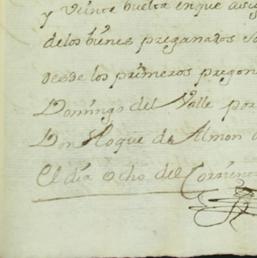 y veinte buelta en que
de los bienes pregonados
desde los primeros pregon
Domingo del Valle por
Don Roque de Almon
el dia ocho del Corrien